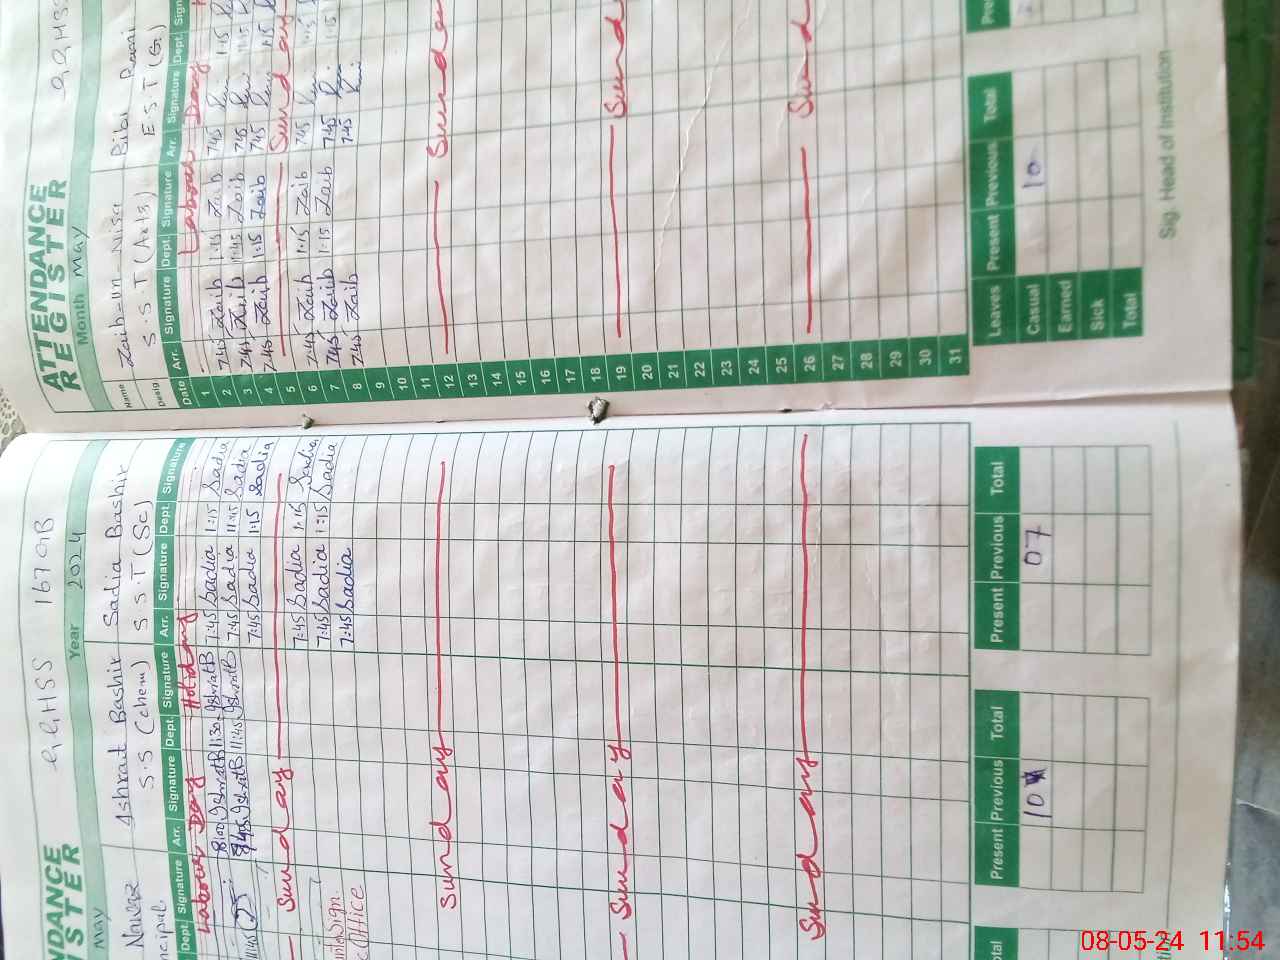 GGHSS 167 GB
Year 2024
Ishrat Bashir Sadia Bashir
S.S (chem) S.S.T (Sc)
Dept. Signature Arr. Signature Dept. Signature Arr. Signature Dept. Signature
Labour Day Holiday
8:00 IshratB 11:30 IshratB 7:45 Sadia 1:15 Sadia
7:45 IshratB 11:45 IshratB 7:45 Sadia 11:45 Sadia
7:45 Sadia 1:15 Sadia
Sunday
7:45 Sadia 1:15 Sadia
7:45 Sadia 1:15 Sadia
Office 7:45 Sadia
Sunday
Sunday
Sunday
Present Previous Total Present Previous Total
10 07
ATTENDANCE
REGISTER
Month May
Name Zaib-un-Nisa Bibi Rani
Desig S.S.T (Arts) E.S.T (G)
Date Arr. Signature Dept. Signature Arr. Signature Dept.
1 Labour Day
2 7:45 Zaib 1:15 Zaib 7:45 1:15
3 7:45 Zaib 11:45 Zaib 7:45
4 7:45 Zaib 1:15 Zaib 7:45 1:15
5 Sunday
6 7:45 Zaib 1:15 Zaib 7:45
7 7:45 Zaib 1:15 Zaib 7:45 1:15
8 7:45 Zaib 7:45
9
10
11
12 Sunday
13
14
15
16
17
18
19 Sund
20
21
22
23
24
25
26 Sund
27
28
29
30
31
Leaves Present Previous Total
Casual 10
Earned
Sick
Total
Sig. Head of Institution
08-05-24 11:54